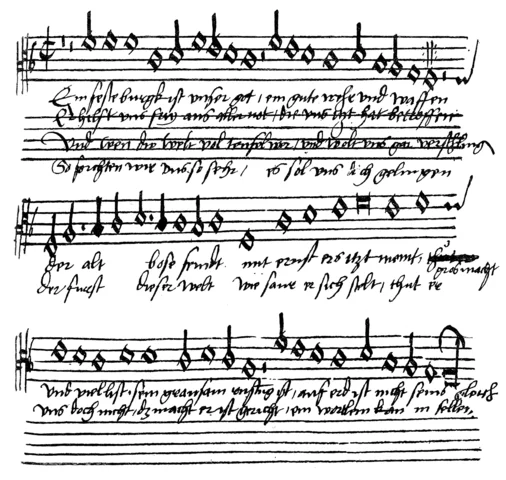 Ein feste burgk ist unser got, ein gute wehr und waffen
Er hilfft uns frey aus aller not, die uns itzt hat betroffen
Und wen die welt vol teufel wer, und wolt uns gar verschling
So forchten wir uns so sehr, es sol uns doch gelingen
der alt bose feindt mit ernst ers itzt meint, gros macht
der furst dieser welt wie saur er sich stelt, thut er
und viel list, sein grausam rustung ist, auf erd ist nicht seins gleich
uns doch nicht, dz macht er ist gericht, ein wortlein kan in fellen